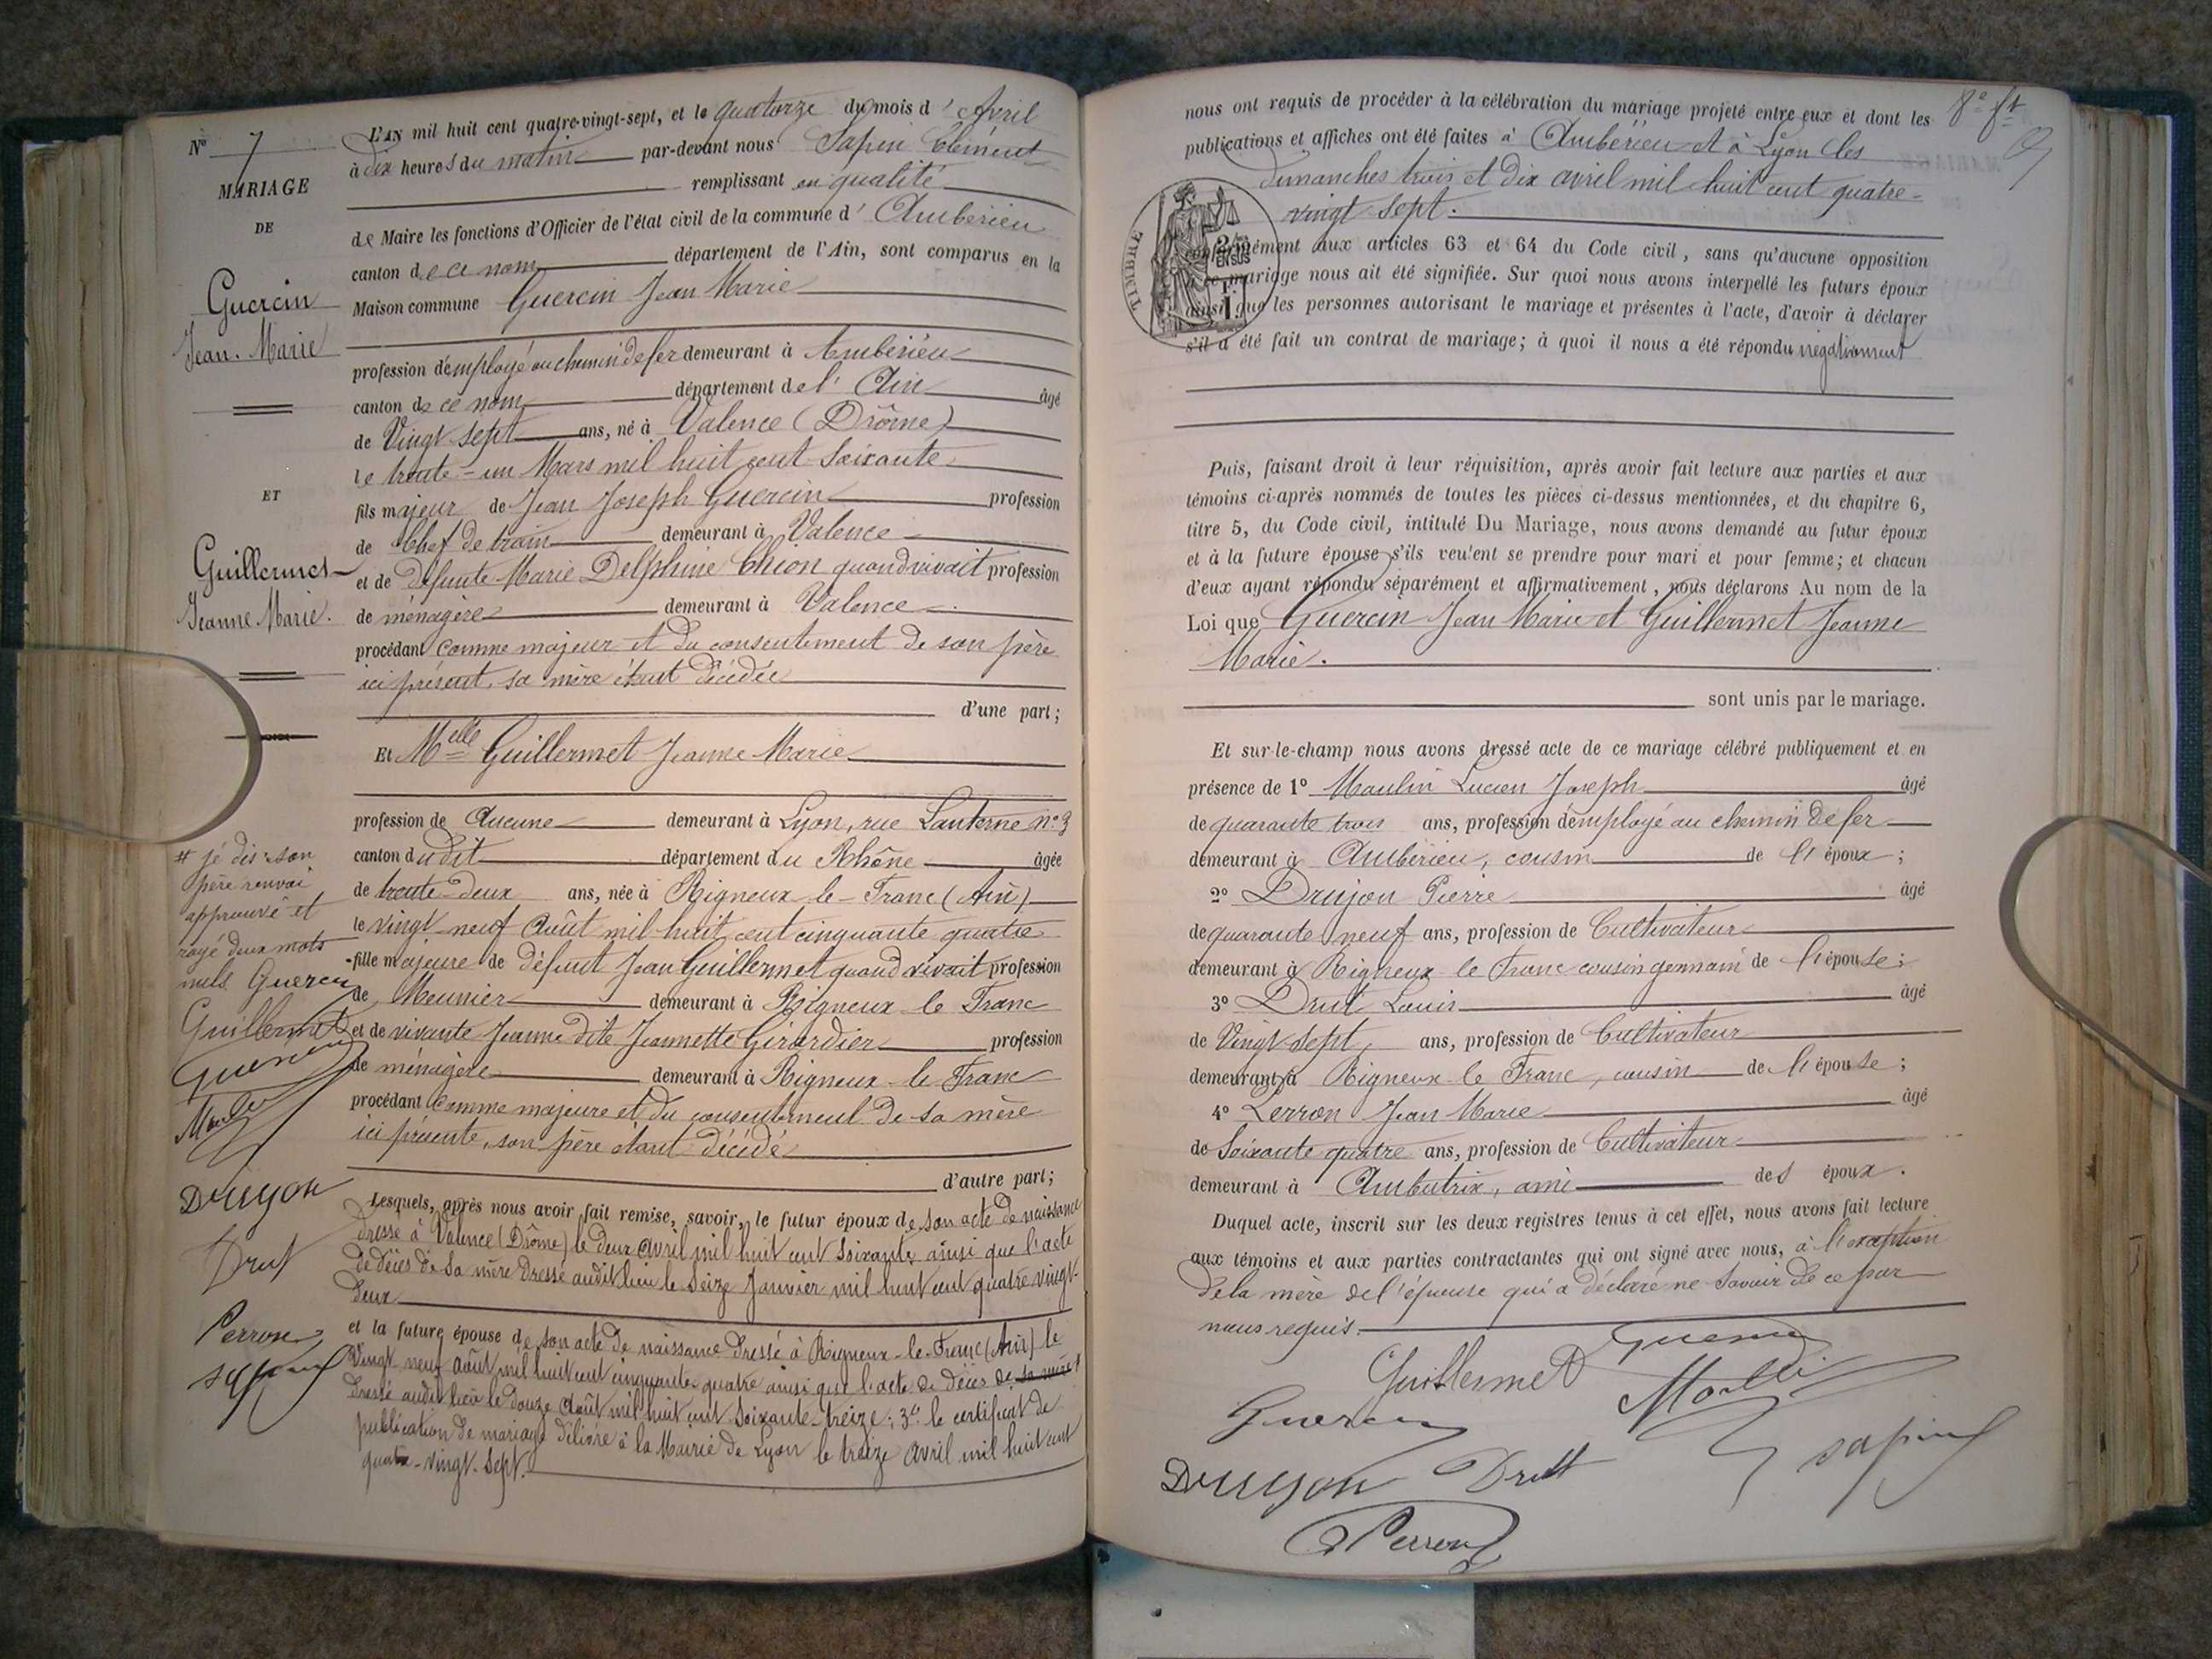 N° 7
MARIAGE
DE
Guercin
Jean-Marie
ET
Guillermet
Jeanne-Marie.
L'AN mil huit cent quatre-vingt-sept, et le quatorze du mois d'Avril
à dix heures du matin par-devant nous Sapin Clément
remplissant en qualité
de Maire les fonctions d'Officier de l'état civil de la commune d'Ambérieu
canton de ce nom département de l'Ain, sont comparus en la
Maison commune Guercin Jean Marie
profession d'employé au chemin de fer demeurant à Ambérieu
canton de ce nom département de l'Ain âgé
de Vingt sept ans, né à Valence (Drôme)
le trente-un Mars mil huit cent soixante
fils majeur de Jean Joseph Guercin profession
de Chef de train demeurant à Valence
et de défunte Marie Delphine Chion quand vivait profession
de ménagère demeurant à Valence
procédant comme majeur et du consentement de son père
ici présent, sa mère étant décédée
d'une part;
Et Melle Guillermet Jeanne Marie
profession de Aucune demeurant à Lyon, rue Lanterne n° 3
canton dudit département du Rhône âgée
de trente-deux ans, née à Rigneux-le-Franc (Ain)
le vingt-neuf Août mil huit cent cinquante quatre
fille majeure de défunt Jean Guillermet quand vivait profession
de Meunier demeurant à Rigneux le Franc
et de vivante Jeanne dite Jeannette Girardier profession
de ménagère demeurant à Rigneux-le Franc
procédant comme majeure et du consentement de sa mère
ici présente, son père étant décédé
d'autre part;
Lesquels, après nous avoir fait remise, savoir, le futur époux de son acte de naissance
dressé à Valence (Drôme) le deux avril mil huit cent soixante, ainsi que l'acte
de décès de sa mère dressé audit lieu le seize Janvier mil huit cent quatre vingt-
deux
et la future épouse de son acte de naissance dressé à Rigneux-le-Franc (Ain) le
Vingt neuf août mil huit cent cinquante quatre ainsi que l'acte de décès de sa mère #
dressé audit lieu le douze Août mil huit cent soixante-treize; 3° le certificat de
publication de mariage délivré à la Mairie de Lyon le treize avril mil huit cent
quatre-vingt-sept.
# jé dis: son
père renvoi
approuvé et
rayé deux mots
nuls Guercin
Guillermet
Guercin
Moulin
Drujon
Drut
Perron
Sapin
nous ont requis de procéder à la célébration du mariage projeté entre eux et dont les
publications et affiches ont été faites à Ambérieu et à Lyon les
dimanches trois et dix avril mil huit cent quatre-
vingt-sept.
TIMBRE
conformément aux articles 63 et 64 du Code civil, sans qu'aucune opposition
à ce mariage nous ait été signifiée. Sur quoi nous avons interpellé les futurs époux
ainsi que les personnes autorisant le mariage et présentes à l'acte, d'avoir à déclarer
s'il a été fait un contrat de mariage; à quoi il nous a été répondu négativement
Puis, faisant droit à leur réquisition, après avoir fait lecture aux parties et aux
témoins ci-après nommés de toutes les pièces ci-dessus mentionnées, et du chapitre 6,
titre 5, du Code civil, intitulé Du Mariage, nous avons demandé au futur époux
et à la future épouse s'ils veulent se prendre pour mari et pour femme; et chacun
d'eux ayant répondu séparément et affirmativement, nous déclarons Au nom de la
Loi que Guercin Jean Marie et Guillermet Jeanne
Marie.
sont unis par le mariage.
Et sur-le-champ nous avons dressé acte de ce mariage célébré publiquement et en
présence de 1° Moulin Lucien Joseph âgé
de quarante trois ans, profession d'employé au chemin de fer
demeurant à Ambérieu, cousin de l'époux;
2° Drujon Pierre âgé
de quarante neuf ans, profession de Cultivateur
demeurant à Rigneux le Franc cousin germain de l'épouse;
3° Drut Louis âgé
de Vingt sept, ans, profession de Cultivateur
demeurant à Rigneux le Franc, cousin de l'épouse;
4° Perron Jean Marie âgé
de Soixante quatre ans, profession de Cultivateur
demeurant à Ambutrix, ami des époux.
Duquel acte, inscrit sur les deux registres tenus à cet effet, nous avons fait lecture
aux témoins et aux parties contractantes qui ont signé avec nous, à l'exception
de la mère de l'épouse qui a déclaré ne savoir de ce par
nous requis.
Guercin
Guillermet
Moulin
Guercin
Sapin
Drujon
Drut
Perron